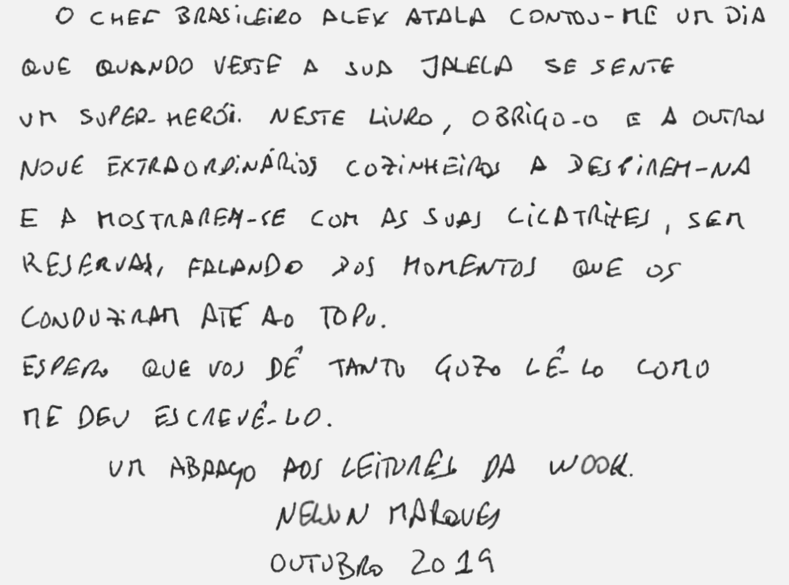 O CHEF BRASILEIRO ALEX ATALA CONTOU-ME UM DIA
QUE QUANDO VESTE A SUA JALECA SE SENTE
UM SUPER-HERÓI. NESTE LIVRO, OBRIGO-O E A OUTROS
NOVE EXTRAORDINÁRIOS COZINHEIROS A DESPIREM-NA
E A MOSTRAREM-SE COM AS SUAS CICATRIZES, SEM
RESERVAS, FALANDO DOS MOMENTOS QUE OS
CONDUZIRAM ATÉ AO TOPO.
ESPERO QUE VOS DÊ TANTO GOZO LÊ-LO COMO
ME DEU ESCREVÊ-LO.
UM ABRAÇO AOS LEITORES DA WOOK.
NELSON MARQUES
OUTUBRO 2019